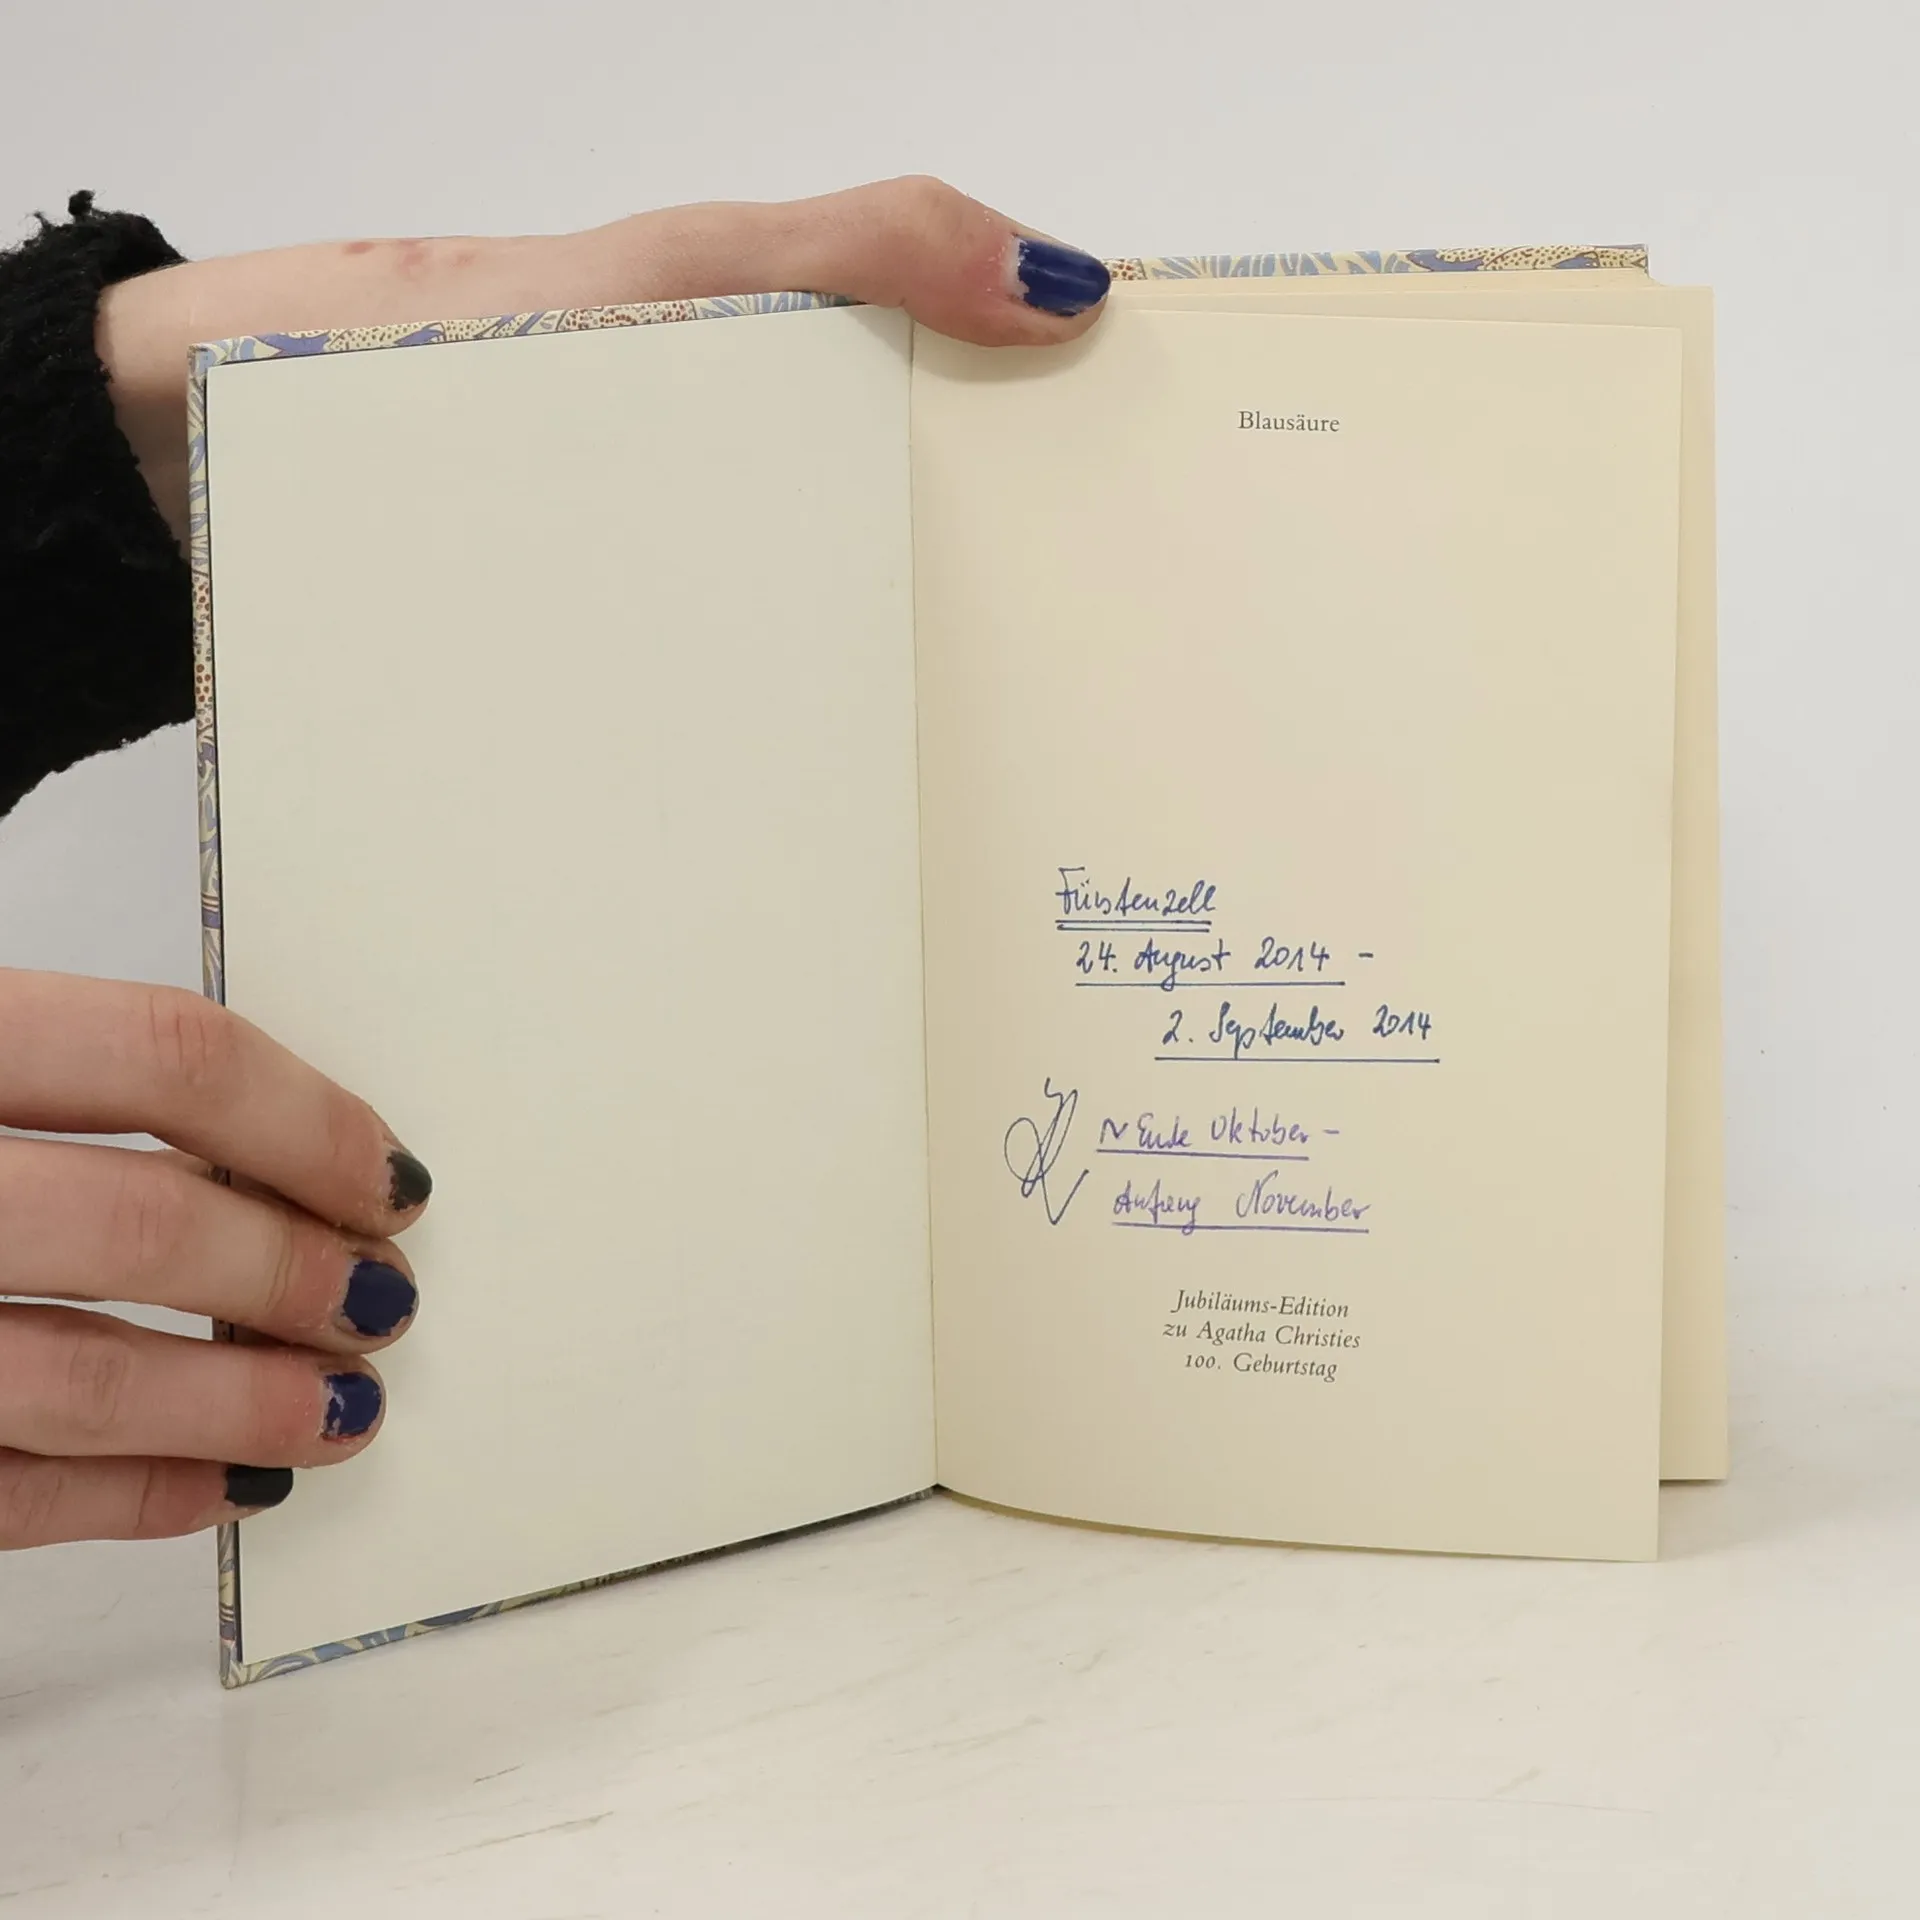 Blausäure
Fürstenzell
24. August 2014 -
2. September 2014
~ Ende Oktober -
Anfang November
Jubiläums-Edition
zu Agatha Christies
100. Geburtstag